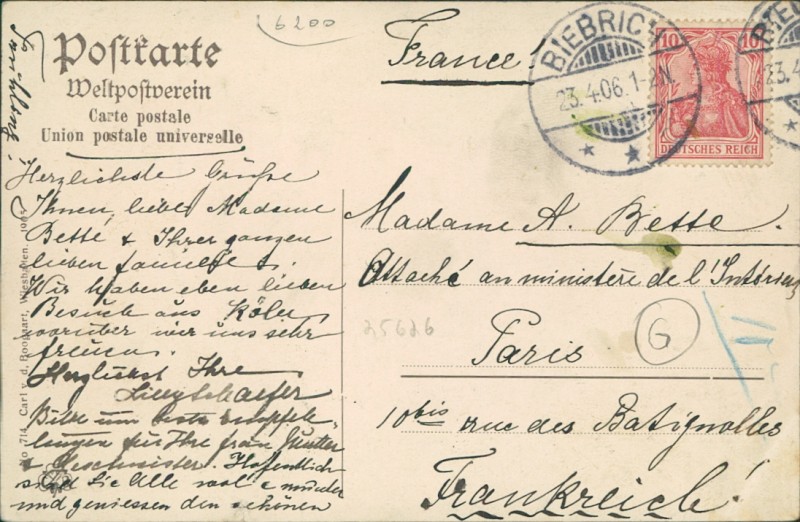 6200
Frühling!
Postkarte
Weltpostverein
Carte postale
Union postale universelle
France!
BIEBRICH
23.4.06.1-2N.
10 10
DEUTSCHES REICH
BIEB
23.4
Herzlichste Grüße
Ihnen, liebe Madame
Bette & Ihrer ganzen
lieben familie
Wir haben eben lieben
Besuch aus Köln
worüber wir uns sehr
freuen.
Herzlichst Ihre
Schaefer
Bitte um beste Empfeh-
lungen für Ihre frau Mutter
& Geschwister. Hoffentlich
sind Sie Alle wohl & munter
und geniessen den schönen
Madame A. Bette.
Attaché au ministère de l'Intérieur
25626
G
Paris
10 bis rue des Batignolles
Frankreich!
No 714 Carl v. d. Boogaart, Wiesbaden, 1905